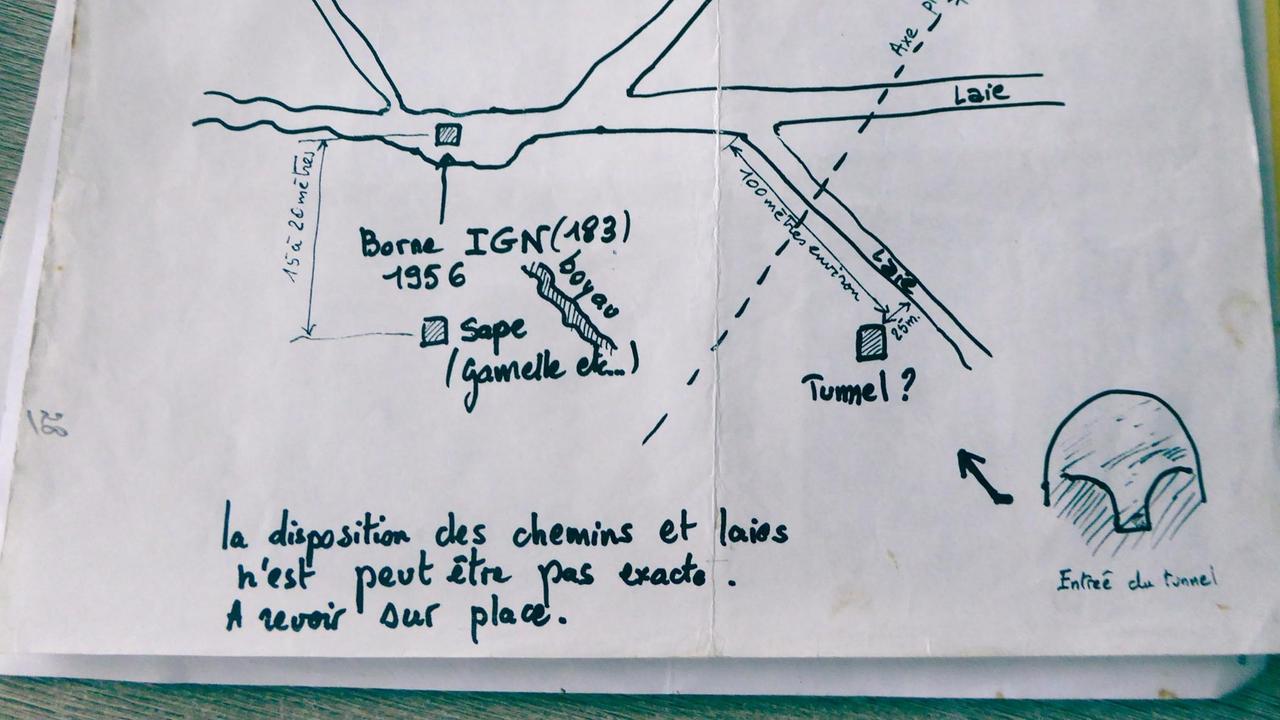 Axe
Laie
15 à 20 mètres
100 mètres environ
Borne IGN (183)
1956
boyau
Laie
25m.
Sape
(Gamelle etc...)
Tunnel ?
28
la disposition des chemins et laies
n'est peut être pas exacte.
A revoir sur place.
Entreé du tunnel